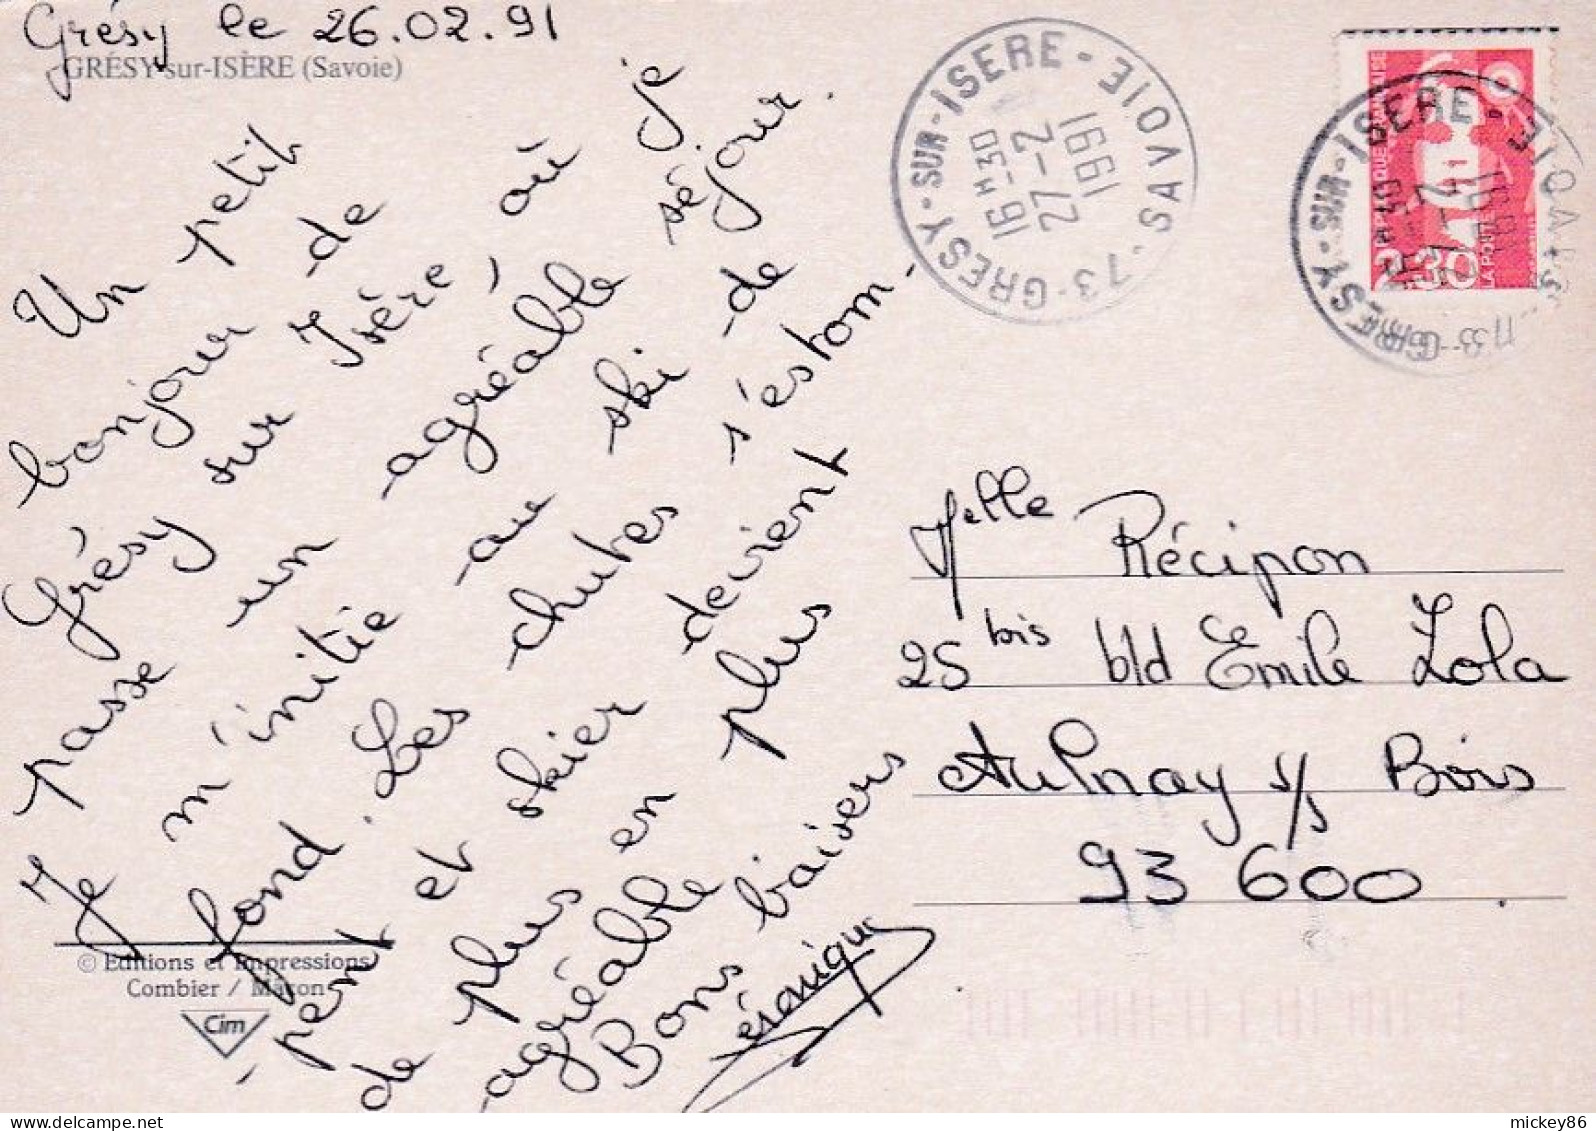 Grésy le 26.02.91
GRÉSY-sur-ISÈRE (Savoie)
Un petit
bonjour de
Grésy sur Isère, où je
passe un agréable séjour.
Je m'initie au ski de
fond. Les chutes s'estom-
-pent et skier devient
de plus en plus
agréable
Bons baisers
Véronique
© Editions et Impressions
Combier / Mâcon
Cim
73-GRESY-SUR-ISERE-SAVOIE
16 H 30
27-2
1991
2,30
LA POSTE
Melle Récipon
25 bis bld Emile Zola
Aulnay s/s Bois
93 600
delcampe.net
mickey86